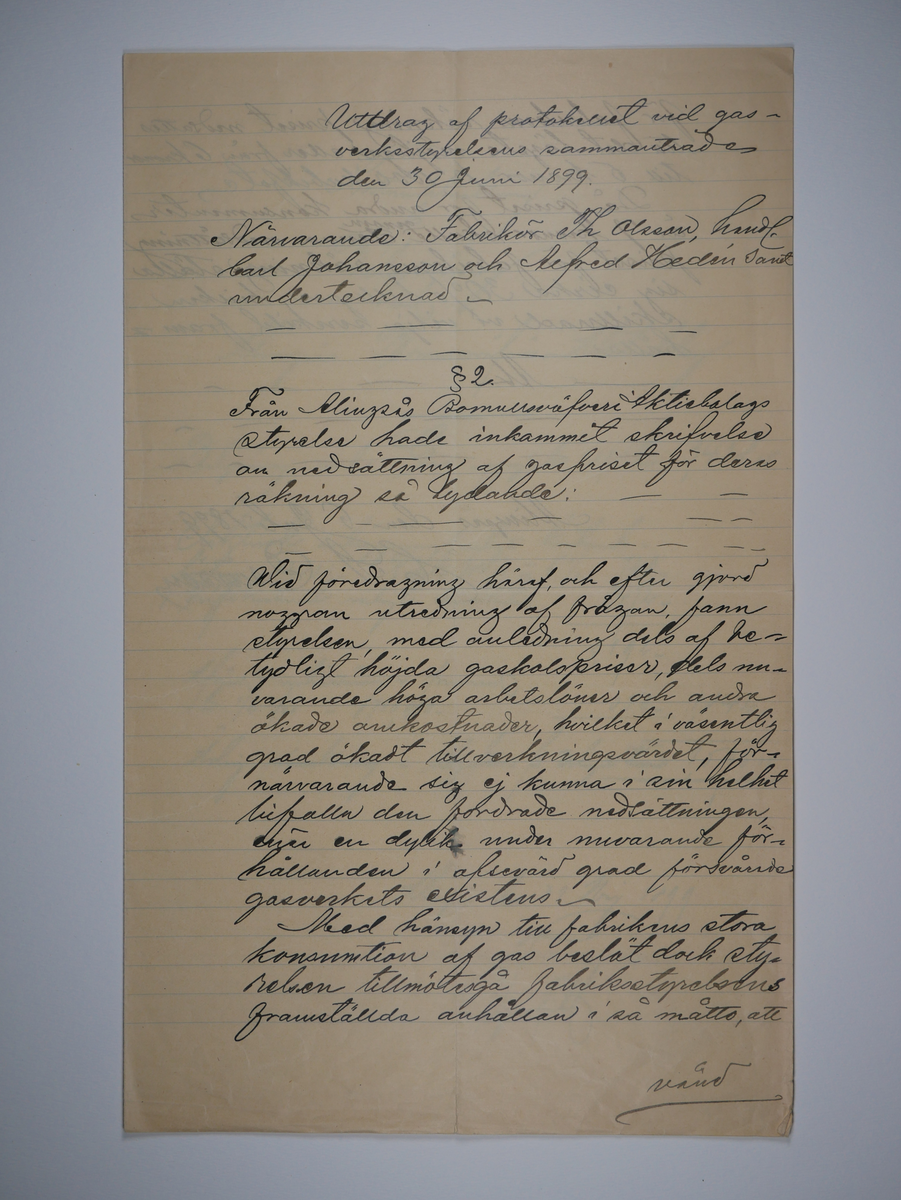 Utdrag af protokollet vid gas-
verksstyrelsens sammanträde
den 30 Juni 1899.
Närvarande: Fabrikör Th Olsson, handl.
Carl Johansson och Alfred Hedén samt
undertecknad
§ 2.
Från Alingsås Bomullsväfveri Aktiebolags
styrelse hade inkommit skrifvelse
om nedsättning af gaspriset för deras
räkning så lydande:
Wid föredragning häraf, och efter gjord
noggran utredning af frågan, fann
styrelsen, med anledning dels af be-
tydligt höjda gaskolspriser, dels nu-
varande höga arbetslöner och andra
ökade omkostnader, hvilket i väsentlig
grad ökadt tillverkningsvärdet, för-
närvarande sig ej kunna i sin helhet
bifalla den fordrade nedsättningen,
enär en dylik under nuvarande för-
hållanden i afsevärd grad försvårade
gasverkets existens
Med hänsyn till fabrikens stora
konsumtion af gas beslöt dock sty-
relsen tillmötesgå fabriksstyrelsens
framställda anhållan i så måtto, att
vänd